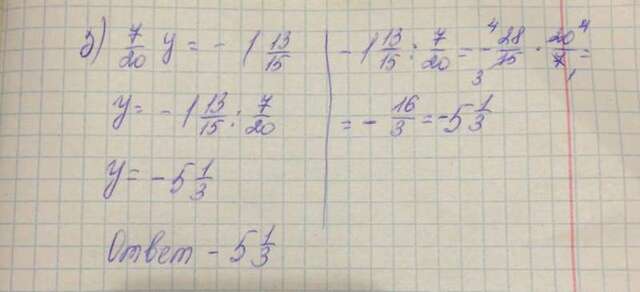 з) 7/20 y = - 1 13/15
y = - 1 13/15 : 7/20
y = - 5 1/3
Ответ - 5 1/3
- 1 13/15 : 7/20 = - 4 28/15 3 · 20 4/7 1 =
= - 16/3 = - 5 1/3